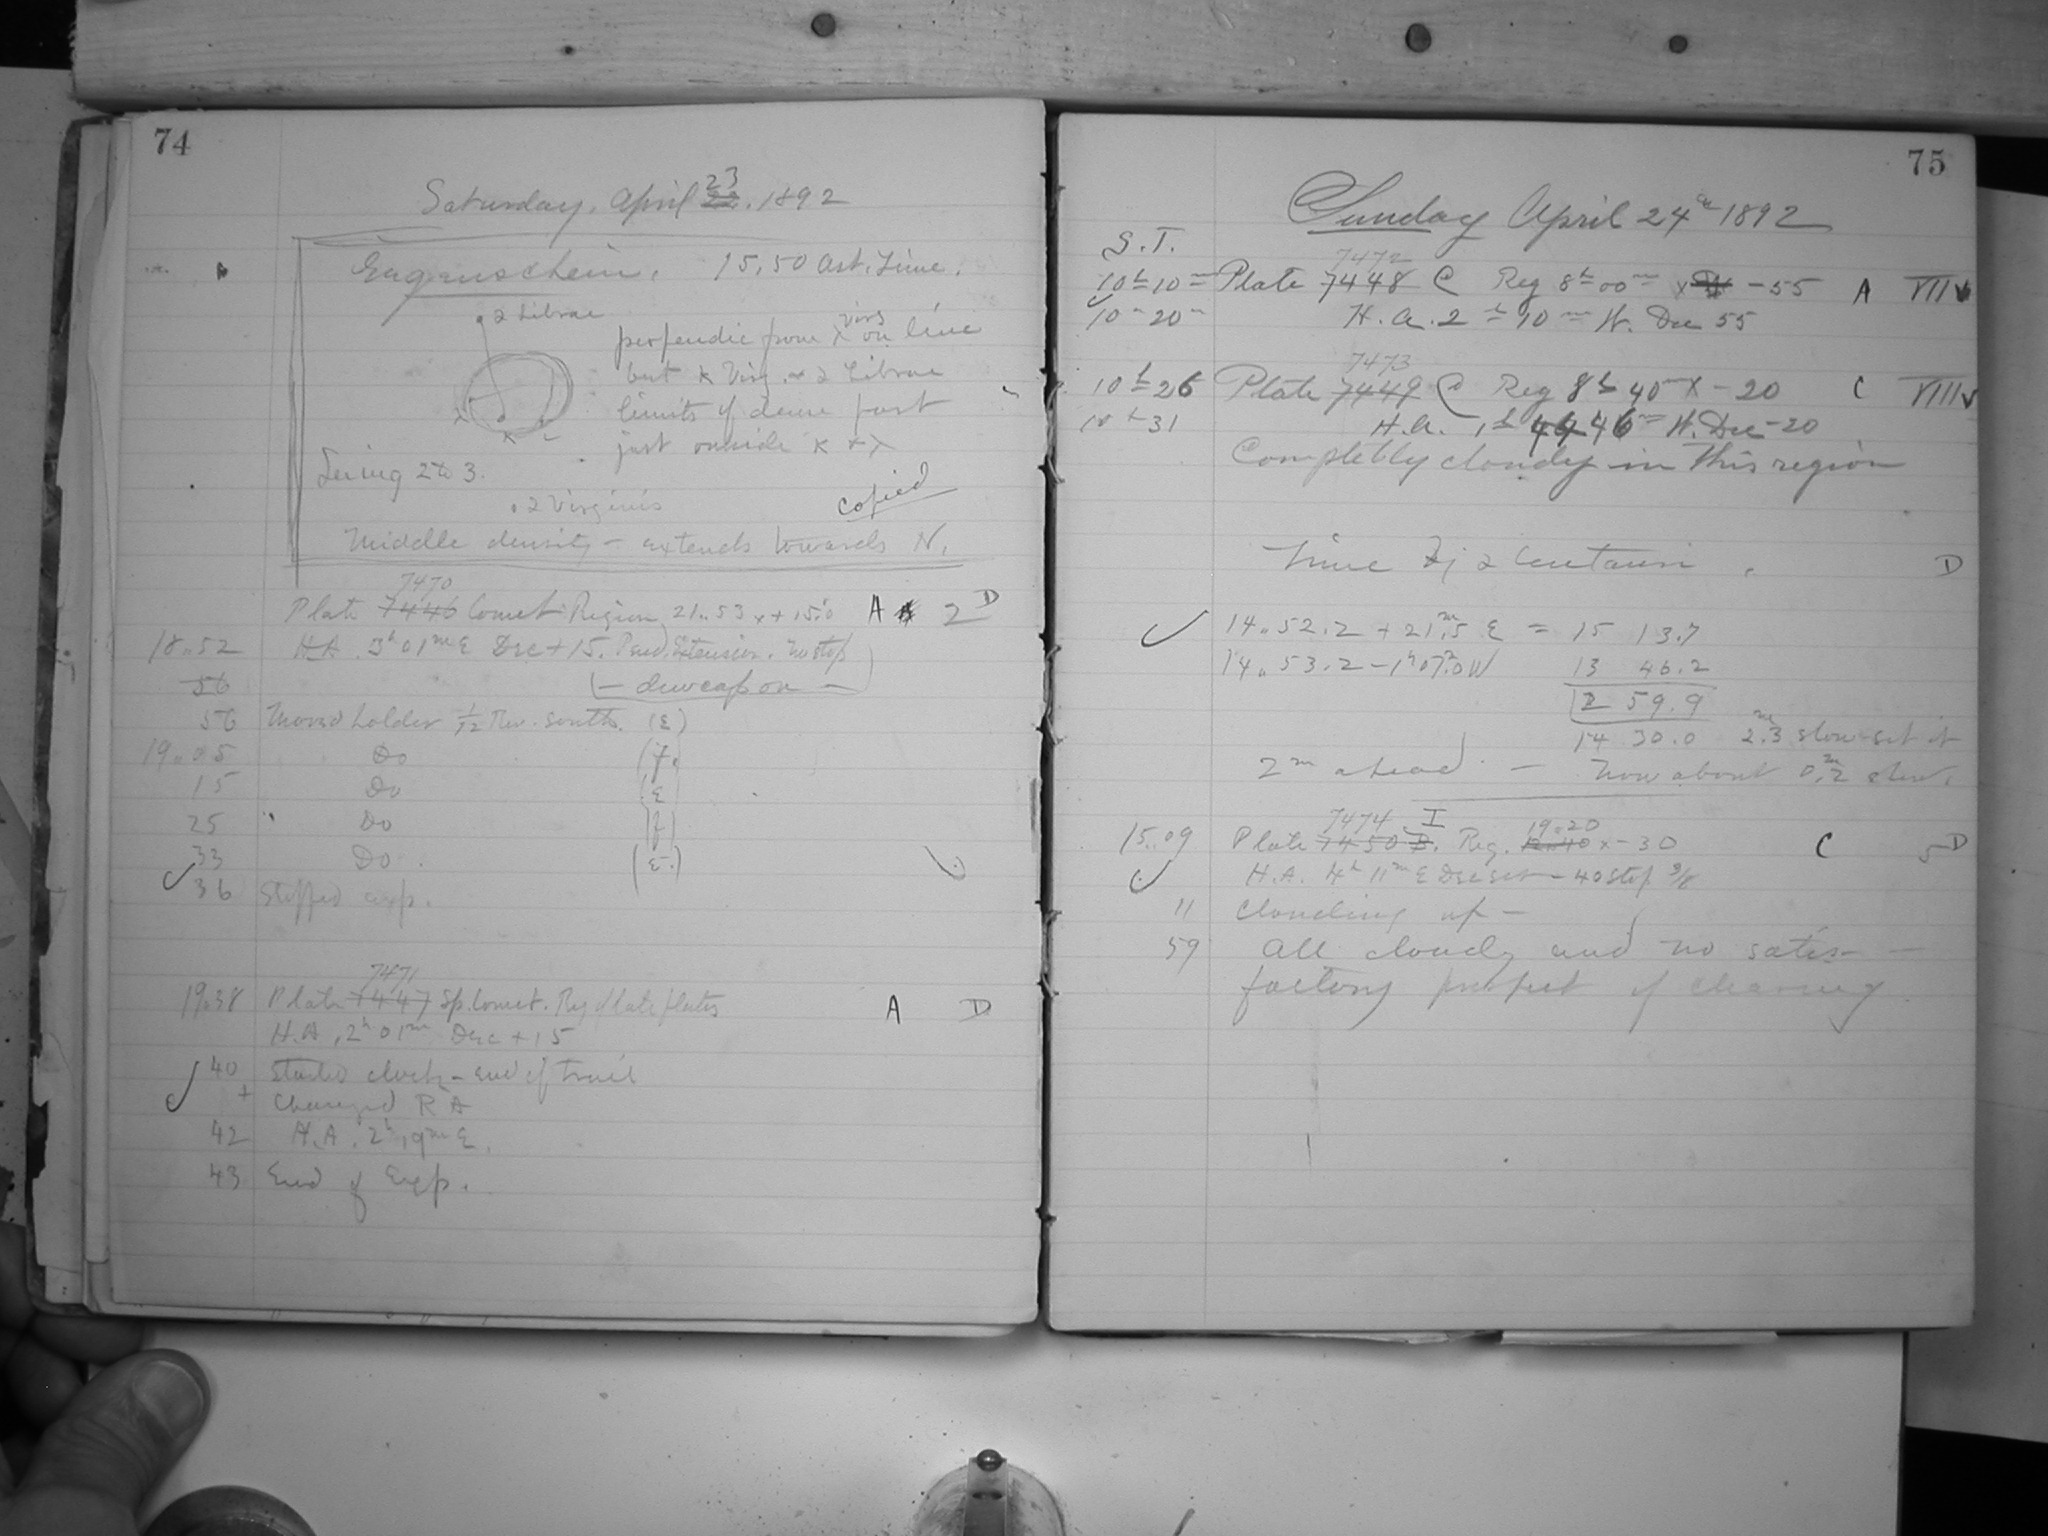 74
Saturday, April 22. 23 1892
Gegenschein. 15.50 Ast. Time.
α Librae
perpendic from λ Virg on line
bet κ Virg. + α Librae
limits of dense part
just outside κ + λ
λ
κ
Seeing 2 to 3.
α Virginis
copied
Middle density – extends towards N.
7470
Plate 7446 Comet Region 21.53 x + 15.0 A 2 D
18.52 H.A. 3h 01m E Dec + 15. Pend. Extension. No stop
56 – dewcap on –
56 Moved holder 1/12 Rev. South. (E)
19.05 Do (f.)
15 Do (E)
25 Do (f)
33 Do. (E.)
36 Stopped exp.
7471
19.38 Plate 7447 Sp. Comet. Reg of late plates A D
H.A. 2h 01m Dec + 15
40 Started clock – end of trail
+ Changed R A
42 H.A. 2h 19m E.
43 End of Exp.
75
Sunday April 24th 1892
S.T.
7472
10h 10m Plate 7448 C Reg 8h 00m x – 55 A VII
10m 20m H.A. 2h 10m W. Dec 55
7473
10h 26 Plate 7449 C Reg 8h 40m x – 20 C VIII
10h 31 H.A. 1h 44 46m W. Dec – 20
Completely cloudy in this region
Time by α Centauri. D
14.52.2 + 21m.5 E = 15 13.7
14.53.2 – 1h 07m.0 W 13 46.2
2 59.9
14 30.0 2m.3 slow set it
2m ahead – now about 0m.2 slow.
7474 I 19.20
15.09 Plate 7450 B. Reg. x – 30 C 5 D
H.A. 4h 11m E Dec set – 40 Stop 9/8
11 Clouding up –
59 All cloudy and no satis-
factory prospect of clearing